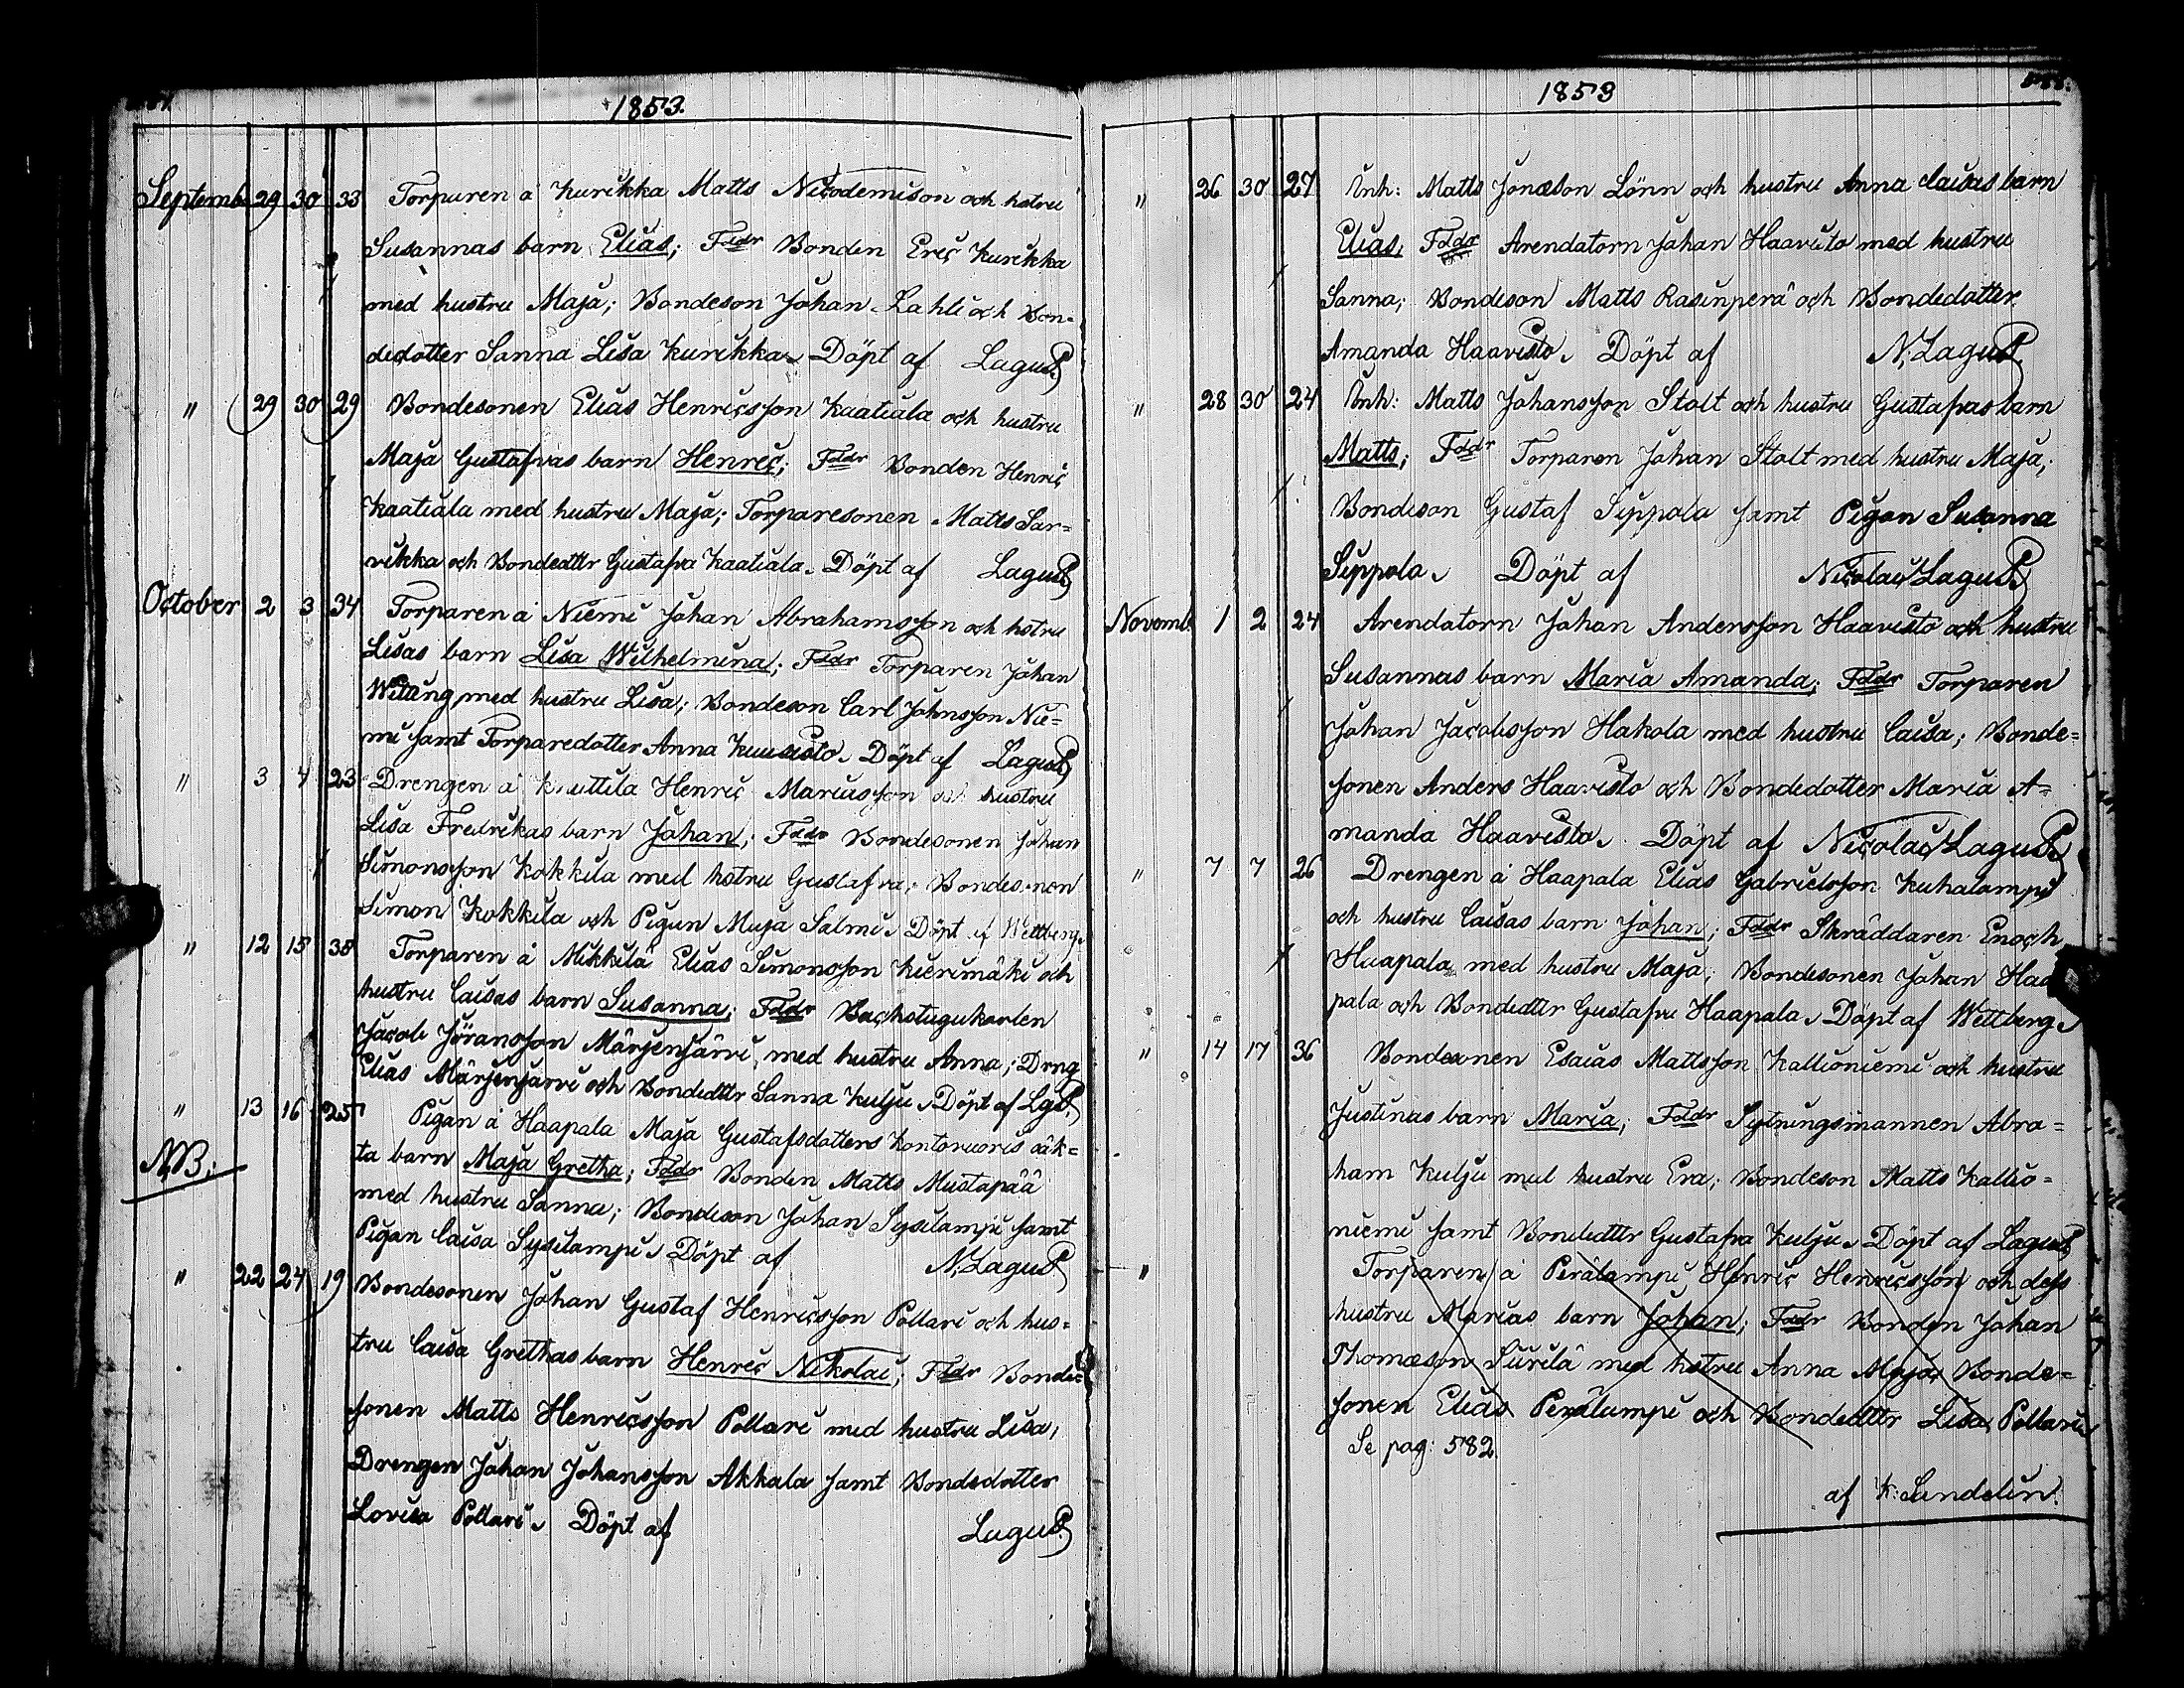 1853.
Septemb. 29 30 33 Torparen å Kurikka Matts Nicodemison och hstru
Susannas barn Elias; Fddr Bonden Eric Kurikka
med hustru Maja; Bondeson Johan Lahti och Bon-
dedotter Sanna Lisa Kurikka. Döpt af Lagus
" 29 30 29 Bondesonen Elias Henricsson Kaatiala och hustru
Maja Gustafvas barn Henric; Fddr Bonden Henric
Kaatiala med hustru Maja; Torparesonen Matts Sar=
vikka och Bondedttr Gustafva Kaatiala. Döpt af Lagus
October 2 3 34 Torparen å Niemi Johan Abrahamsson och hstru
Lisas barn Lisa Wilhelmina; Fddr Torparen Johan
Witting med hustru Lisa; Bondeson Carl Johnsson Nie=
mi samt Torparedotter Anna Kuusisto. Döpt af Lagus
" 3 4 23 Drengen å Knuttila Henric Mariusson och hustru
Lisa Fredrikas barn Johan; Fddr Bondesonen Johan
Simonsson Kokkila med hstru Gustafva; Bondesonen
Simon Kokkila och Pigan Maja Salmi. Döpt af Wettberg.
" 12 15 38 Torparen å Mikkilä Elias Simonsson Kierimäki och
hustru Caisas barn Susanna; Fddr Backstugukarlen
Jacob Jöransson Märjenjärvi, med hustru Anna; Drng
Elias Märjenjärvi och Bondedttr Sanna Kulju. Döpt af Lgs.
" 13 16 25 Pigan å Haapala Maja Gustafsdotters Kontoruoris oäk=
NB: ta barn Maja Gretha; Fddr Bonden Matts Mustapää
med hustru Sanna; Bondeson Johan Sysilampi samt
Pigan Caisa Sysilampi. Döpt af N. Lagus
" 22 24 19 Bondesonen Johan Gustaf Henricsson Pollari och hus=
tru Caisa Grethas barn Henric Nikolai; Fddr Bonde=
sonen Matts Henricsson Pollari med hustru Lisa,
Drengen Johan Johansson Akkala samt Bondedotter
Lovisa Pollari. Döpt af Lagus
1853
" 26 30 27 Inh: Matts Jonæson Lönn och hustru Anna Caisas barn
Elias, Fddr Arendatorn Johan Haavisto med hustru
Sanna; Bondeson Matts Rasinperä och Bondedotter
Amanda Haavisto. Döpt af N. Lagus
" 28 30 24 Inh: Matts Johansson Stolt och hustru Gustafvas barn
Matts; Fddr Torparen Johan Stolt med hustru Maja;
Bondeson Gustaf Sippola samt Pigan Susanna
Sippola. Döpt af Nicolai Lagus
Novemb. 1 2 24 Arendatorn Johan Andersson Haavisto och hustru
Susannas barn Maria Amanda; Fddr Torparen
Johan Jacobsson Hakola med hustru Caisa; Bonde=
sonen Anders Haavisto och Bondedotter Maria A=
manda Haavisto. Döpt af Nicolai Lagus
" 7 7 26 Drengen å Haapala Elias Gabrielsson Kuhalampi
och hustru Caisas barn Johan; Fddr Skräddaren Enoch
Haapala med hustru Maja; Bondesonen Johan Haa
pala och Bondedttr Gustafva Haapala. Döpt af Wettberg.
" 14 17 36 Bondesonen Esaias Mattsson Kallioniemi och hustru
Justinas barn Maria; Fddr Sytningsmannen Abra=
ham Kulju med hustru Eva; Bondeson Matts Kallio=
niemi samt Bondedttr Gustafva Kulju. Döpt af Lagus
" Torparen å Perälampi Henric Henricsson och dess
hustru Marias barn Johan; Fddr Bonden Johan
Thomæson Siirilä med hstru Anna Maja, Bonde=
sonen Elias Perälampi och Bondedttr Lisa Pollari
Se pag: 582.
af K: Sundelin.